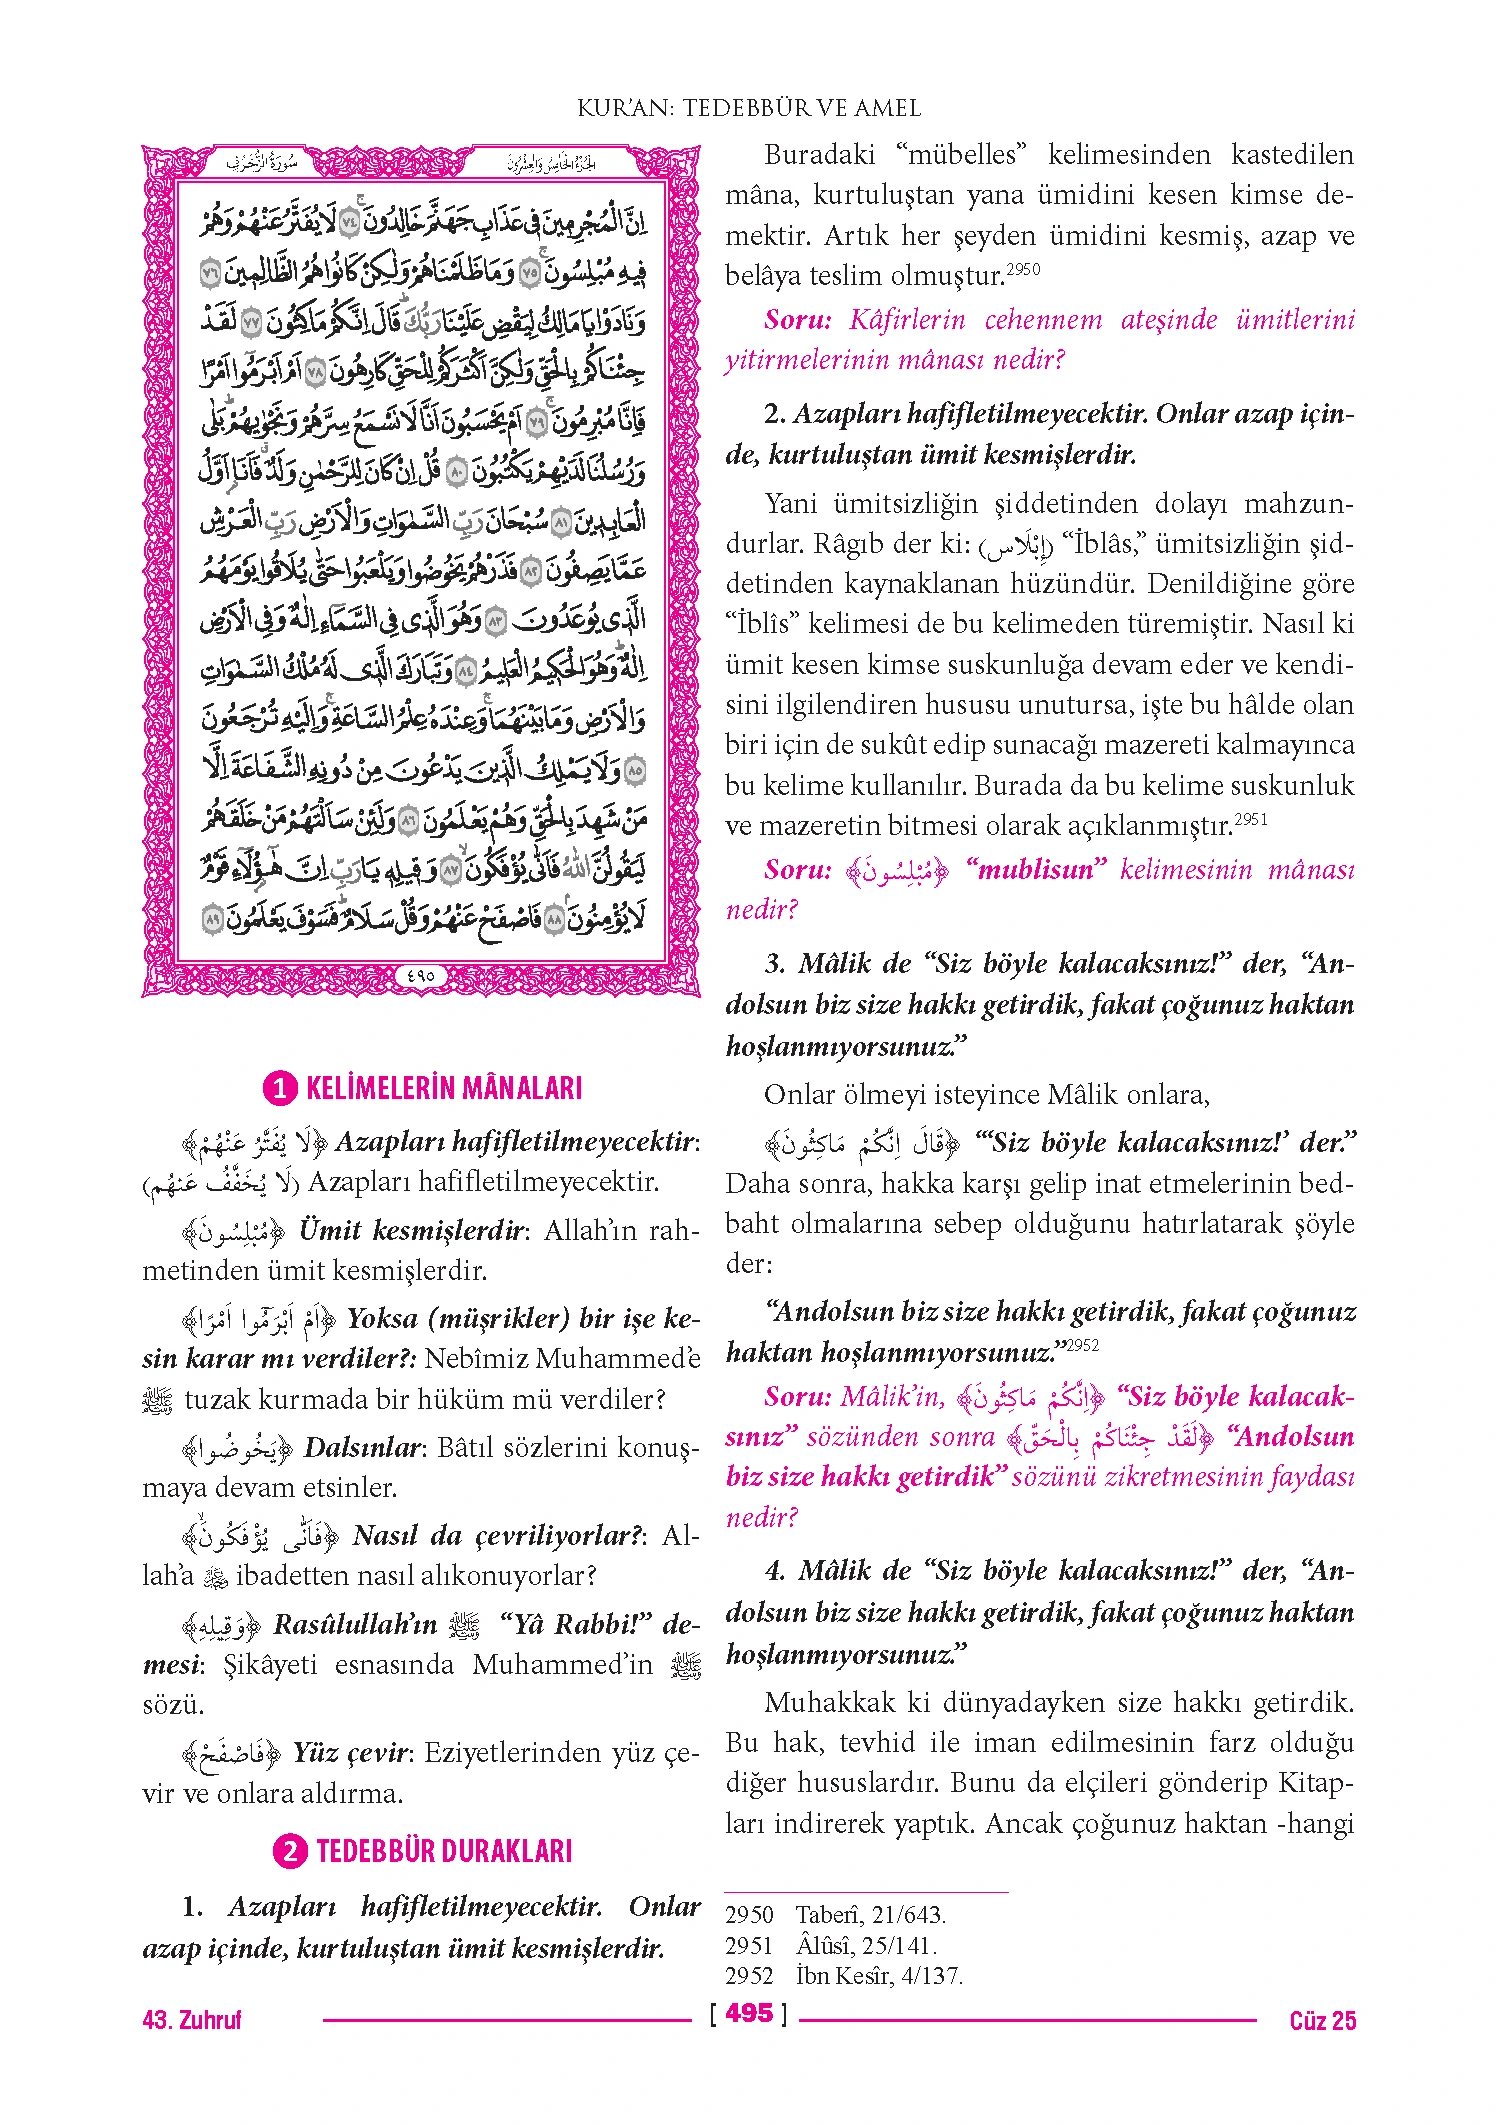 KUR’AN: TEDEBBÜR VE AMEL
سُورَةُ الزُّخْرُفِ
الجُزْءُ الخَامِسُ وَالعِشْرُونَ
اِنَّ الْمُجْرِمٖينَ فٖى عَذَابِ جَهَنَّمَ خَالِدُونَۚ ﴿٧٤﴾ لَا يُفَتَّرُ عَنْهُمْ وَهُمْ
فٖيهِ مُبْلِسُونَۚ ﴿٧٥﴾ وَمَا ظَلَمْنَاهُمْ وَلٰكِنْ كَانُوا هُمُ الظَّالِمٖينَ ﴿٧٦﴾
وَنَادَوْا يَا مَالِكُ لِيَقْضِ عَلَيْنَا رَبُّكَؕ قَالَ اِنَّكُمْ مَاكِثُونَ ﴿٧٧﴾ لَقَدْ
جِئْنَاكُمْ بِالْحَقِّ وَلٰكِنَّ اَكْثَرَكُمْ لِلْحَقِّ كَارِهُونَ ﴿٧٨﴾ اَمْ اَبْرَمُٓوا اَمْرًا
فَاِنَّا مُبْرِمُونَۚ ﴿٧٩﴾ اَمْ يَحْسَبُونَ اَنَّا لَا نَسْمَعُ سِرَّهُمْ وَنَجْوٰيهُمْؕ بَلٰى
وَرُسُلُنَا لَدَيْهِمْ يَكْتُبُونَ ﴿٨٠﴾ قُلْ اِنْ كَانَ لِلرَّحْمٰنِ وَلَدٌۗ فَاَنَا۬ اَوَّلُ
الْعَابِدٖينَ ﴿٨١﴾ سُبْحَانَ رَبِّ السَّمٰوَاتِ وَالْاَرْضِ رَبِّ الْعَرْشِ
عَمَّا يَصِفُونَ ﴿٨٢﴾ فَذَرْهُمْ يَخُوضُوا وَيَلْعَبُوا حَتّٰى يُلَاقُوا يَوْمَهُمُ
الَّذٖى يُوعَدُونَ ﴿٨٣﴾ وَهُوَ الَّذٖى فِى السَّمَٓاءِ اِلٰهٌ وَفِى الْاَرْضِ
اِلٰهٌؕ وَهُوَ الْحَكٖيمُ الْعَلٖيمُ ﴿٨٤﴾ وَتَبَارَكَ الَّذٖى لَهُ مُلْكُ السَّمٰوَاتِ
وَالْاَرْضِ وَمَا بَيْنَهُمَاۚ وَعِنْدَهُ عِلْمُ السَّاعَةِۚ وَاِلَيْهِ تُرْجَعُونَ
﴿٨٥﴾ وَلَا يَمْلِكُ الَّذٖينَ يَدْعُونَ مِنْ دُونِهِ الشَّفَاعَةَ اِلَّا
مَنْ شَهِدَ بِالْحَقِّ وَهُمْ يَعْلَمُونَ ﴿٨٦﴾ وَلَئِنْ سَاَلْتَهُمْ مَنْ خَلَقَهُمْ
لَيَقُولُنَّ اللّٰهُ فَاَنّٰى يُؤْفَكُونَۙ ﴿٨٧﴾ وَقٖيلِهٖ يَا رَبِّ اِنَّ هٰٓؤُ۬لَٓاءِ قَوْمٌ
لَا يُؤْمِنُونَۘ ﴿٨٨﴾ فَاصْفَحْ عَنْهُمْ وَقُلْ سَلَامٌؕ فَسَوْفَ يَعْلَمُونَ ﴿٨٩﴾
٤٩٥
1 KELİMELERİN MÂNALARI
﴿لَا يُفَتَّرُ عَنْهُمْ﴾ Azapları hafifletilmeyecektir:
(لَا يُخَفَّفُ عَنهُم) Azapları hafifletilmeyecektir.
﴿مُبْلِسُونَ﴾ Ümit kesmişlerdir: Allah’ın rah-
metinden ümit kesmişlerdir.
﴿اَمْ اَبْرَمُٓوا اَمْرًا﴾ Yoksa (müşrikler) bir işe ke-
sin karar mı verdiler?: Nebîmiz Muhammed’e
ﷺ tuzak kurmada bir hüküm mü verdiler?
﴿يَخُوضُوا﴾ Dalsınlar: Bâtıl sözlerini konuş-
maya devam etsinler.
﴿فَاَنّٰى يُؤْفَكُونَۙ﴾ Nasıl da çevriliyorlar?: Al-
lah’a ﷻ ibadetten nasıl alıkonuyorlar?
﴿وَقِيلِهِ﴾ Rasûlullah’ın ﷺ “Yâ Rabbi!” de-
mesi: Şikâyeti esnasında Muhammed’in ﷺ
sözü.
﴿فَاصْفَحْ﴾ Yüz çevir: Eziyetlerinden yüz çe-
vir ve onlara aldırma.
2 TEDEBBÜR DURAKLARI
1. Azapları hafifletilmeyecektir. Onlar
azap içinde, kurtuluştan ümit kesmişlerdir.
Buradaki “mübelles” kelimesinden kastedilen
mâna, kurtuluştan yana ümidini kesen kimse de-
mektir. Artık her şeyden ümidini kesmiş, azap ve
belâya teslim olmuştur.2950
Soru: Kâfirlerin cehennem ateşinde ümitlerini
yitirmelerinin mânası nedir?
2. Azapları hafifletilmeyecektir. Onlar azap için-
de, kurtuluştan ümit kesmişlerdir.
Yani ümitsizliğin şiddetinden dolayı mahzun-
durlar. Râgıb der ki: (إِبْلَاس) “İblâs,” ümitsizliğin şid-
detinden kaynaklanan hüzündür. Denildiğine göre
“İblîs” kelimesi de bu kelimeden türemiştir. Nasıl ki
ümit kesen kimse suskunluğa devam eder ve kendi-
sini ilgilendiren hususu unutursa, işte bu hâlde olan
biri için de sukût edip sunacağı mazereti kalmayınca
bu kelime kullanılır. Burada da bu kelime suskunluk
ve mazeretin bitmesi olarak açıklanmıştır.2951
Soru: ﴿مُبْلِسُونَ﴾ “mublisun” kelimesinin mânası
nedir?
3. Mâlik de “Siz böyle kalacaksınız!” der, “An-
dolsun biz size hakkı getirdik, fakat çoğunuz haktan
hoşlanmıyorsunuz.”
Onlar ölmeyi isteyince Mâlik onlara,
﴿قَالَ اِنَّكُمْ مَاكِثُونَ﴾ “‘Siz böyle kalacaksınız!’ der.”
Daha sonra, hakka karşı gelip inat etmelerinin bed-
baht olmalarına sebep olduğunu hatırlatarak şöyle
der:
“Andolsun biz size hakkı getirdik, fakat çoğunuz
haktan hoşlanmıyorsunuz.”2952
Soru: Mâlik’in, ﴿اِنَّكُمْ مَاكِثُونَ﴾ “Siz böyle kalacak-
sınız” sözünden sonra ﴿لَقَدْ جِئْنَاكُمْ بِالْحَقِّ﴾ “Andolsun
biz size hakkı getirdik” sözünü zikretmesinin faydası
nedir?
4. Mâlik de “Siz böyle kalacaksınız!” der, “An-
dolsun biz size hakkı getirdik, fakat çoğunuz haktan
hoşlanmıyorsunuz.”
Muhakkak ki dünyadayken size hakkı getirdik.
Bu hak, tevhid ile iman edilmesinin farz olduğu
diğer hususlardır. Bunu da elçileri gönderip Kitap-
ları indirerek yaptık. Ancak çoğunuz haktan -hangi
2950 Taberî, 21/643.
2951 Âlûsî, 25/141.
2952 İbn Kesîr, 4/137.
43. Zuhruf
[ 495 ]
Cüz 25